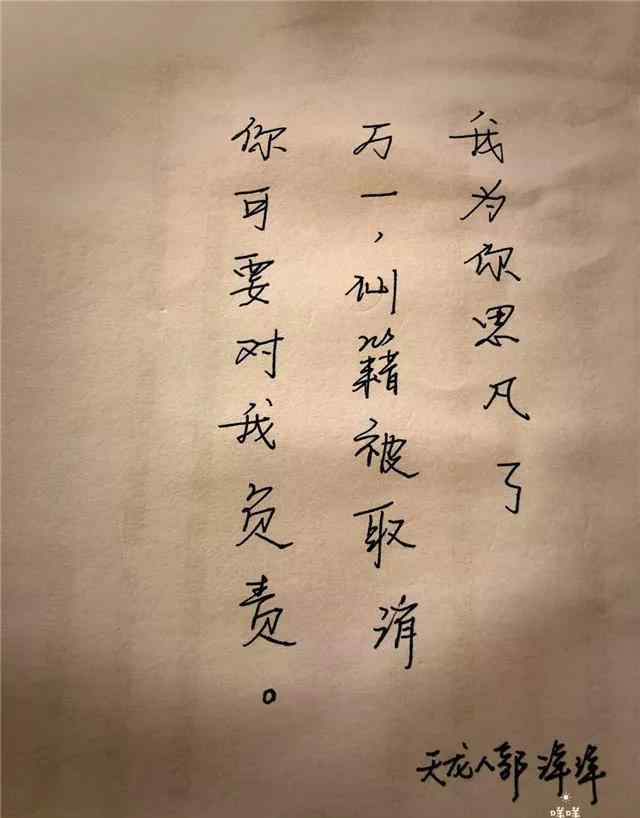 我为你思凡了
万一，仙籍被取消
你可要对我负责。
天龙人郭
咩咩